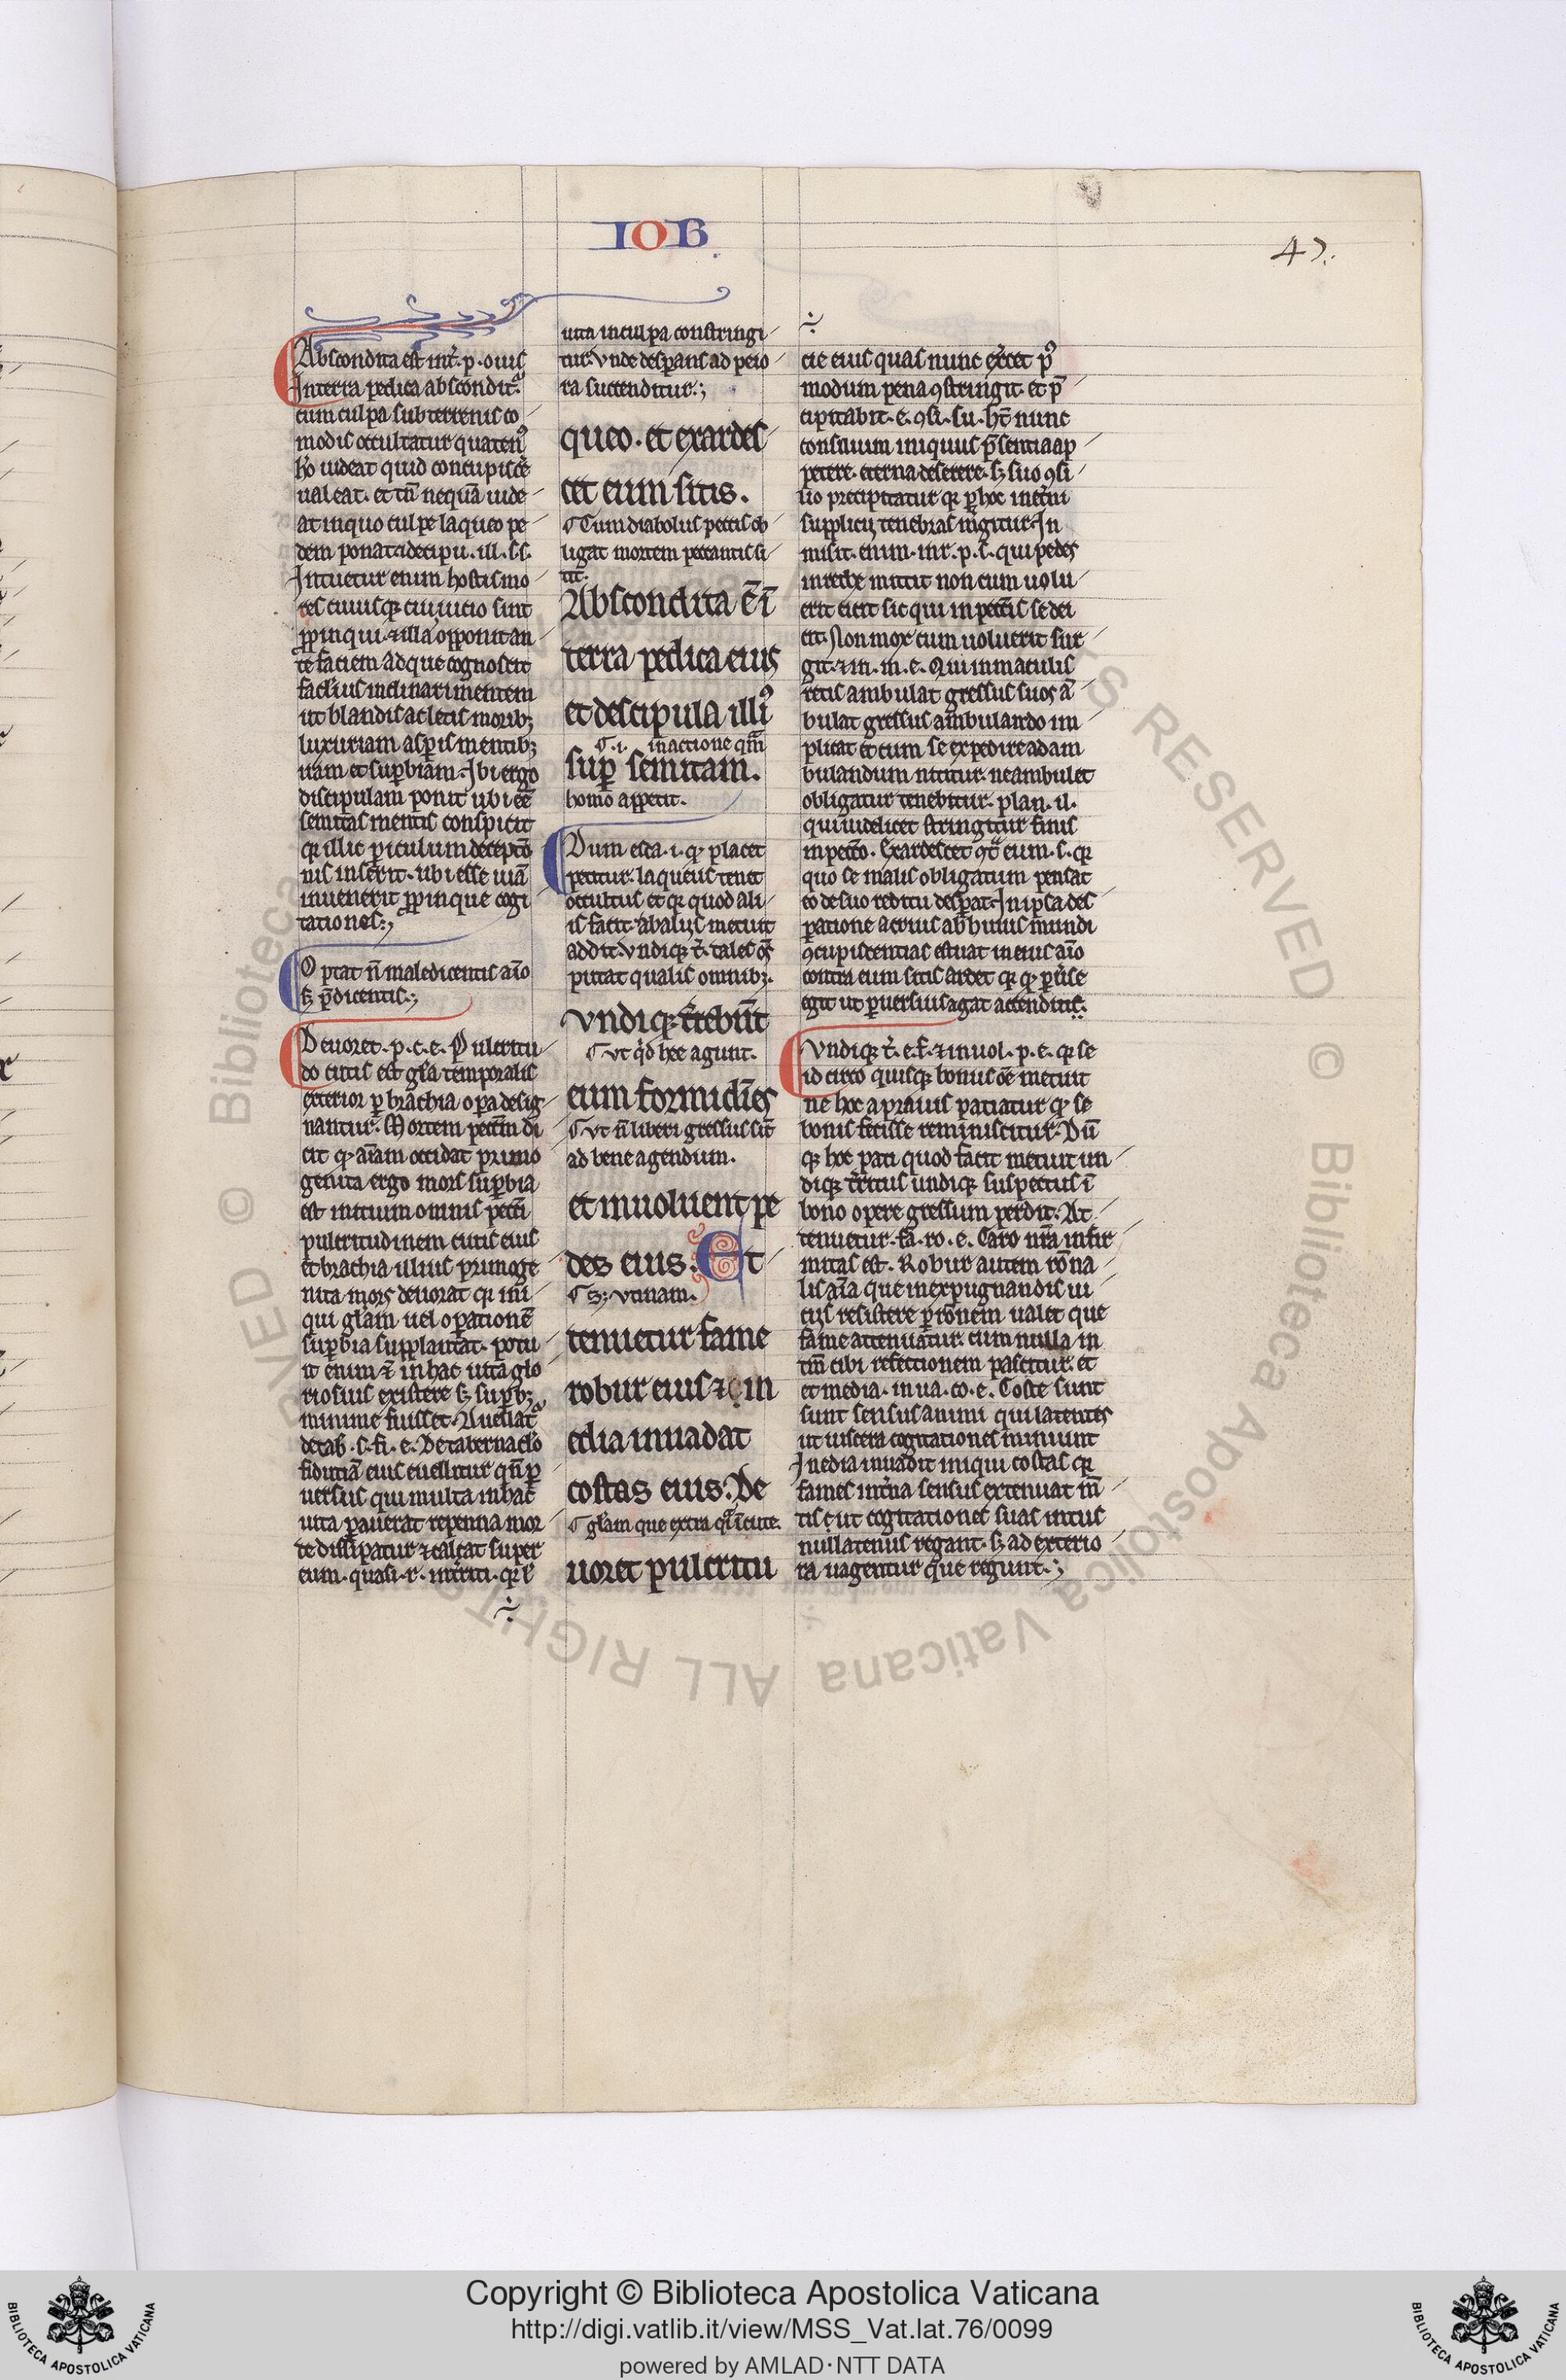 IOB
47.
Abscondita est int̄. p. eius
In terra pedica absconditur
cum culpa sub terrenis co
modis occultatur quaten᾽
ho᾽ uideat quid concupisce
ualeat. et tn̄ nequā uide
at in quo culpe laqueo pe
dem ponat. et decipu. ill. s. s.
Intuetur enim hostis mo
res cuiusq; cui uicio sint
ꝓpinqui. ⁊ illa opponit an
te faciem ad que cognoscit
facilius inclinari mentem
ut blandis ac letis morib;
luxuriam asꝑis mentib;
iram et suꝑbiam. Ibi ergo
discipulam ponit ubi eē
semitas mentis conspicit
qꝛ illic ꝑiculum deceptio
nis inserit. ubi esse uiā
inuenerit ꝓpinque cogi
tationes.
Optat n̄ maledicentis aīo
s; p̄dicentis.
Deuoret. p. c. e. Pulcritu
do cutis est gl̄a temporalis
exterior ꝑ brachia oꝑa desig
nantur. Mortem pecc̄m di
cit qꝫ aīam occidat primo
genita ergo mors suꝑbia
est initium omnis pecc̄i
pulcritudinem cutis eius
et brachia illius primoge
nita mors deuorat qꝛ
qui gl̄am uel oꝑationē
suꝑbia supplantat. potu
it enim ⁊ in hac uita glo
riosius existere s; suꝑb;
minime fuisset. Auellat᾽
de tab. s. fi. e. De tabernacl̄o
fiducia eius euellitur qn̄ ꝑ
uersus qui multa in hac
uita ꝑauerat repentina mor
te dissipatur ⁊ calcat super
eum. quasi. r. int̄iti. qꝛ
uita in culpa constringi
tur. Vnde desꝑans ad peio
ra succenditur.
queo. et exardes
cet eum sitis.
Cum diabolus peccis ob
ligat mortem peccantis si
tit.
Abscondita ē ī
terra pedica eius
et descipula illi᾽
.i. in actione qm̄
suꝑ semitam.
homo appetit.
Dum esca. i. qꝫ placet
petitur. laqueus tenet
occultus et qꝛ quod ali
is facit ab alijs metuit
addit. Vndiqꝫ t᾽. tales oēs
putat qualis omnib;.
Vndiqꝫ t᾽rebūt
Vt qd̄ hec agunt.
eum formidīes
Vt n̄ liberi gressus sīt
ad bene agendum.
et inuoluent pe
des eius. Et
S; utinam.
tenuetur fame
robur eius ⁊ in
edia inuadat
costas eius. De
gl̄am que extra qͣ ī cute.
uoret pulcritu
cie eius quas nunc ex̄cet p᾽
modum pena ꝯstringit. et p̄
cipitabit. e. ꝯsi. su. hīt nunc
consilium iniquus p̄sentia ap
petere. eterna deserere. s; suo ꝯsi
lio precipitatur qꝛ ꝑ hoc in et̄ni
supplicij tenebras mgitur. In
misit. enim. in r. p. s. qui pedes
in rethe mittit non cum uolu
erit eicit sic qui in pecc̄is se dei
cit. Non mox cum uoluerit sur
git. ⁊ in. m. e. Qui in maculis
retis ambulat gressus suos ā
bulat gressus ambulando im
plicat et cum se expedire ad am
bulandum nititur. ne ambulet
obligatur tenebitur. plan. il.
qui uidelicet stringitur finis
in pecc̄o. Exardescet ꝯͭ eum. s. qꝛ
quo se malis obligatum pensat
eo de suo reditu desꝑat. In ipsa des
ꝑatione acrius ab huius mundi
ꝯcupiscentias estuat in eius aīo
contra eum sitis ardet qꝛ qꝫ p̄us se
egit ut ꝑuersius agat accenditur.
Vndiqꝫ t᾽. e. f. ⁊ inuol. p. e. qꝛ se
id circo quisqꝫ bonus eē metuit
ne hoc a prauis patiatur qꝫ se
bonis fecisse reminiscitur. Dū
qꝫ hoc pati quod facit metuit un
diqꝫ t᾽ritus undiqꝫ suspectus ī
bono opere gressum perdit. At
tenuetur. fa. ro. e. Caro nr̄a infir
mitas est. Robur autem rōna
lis aīa que inexpugnandis ui
cijs resistere ꝑ rōnem ualet que
fame attenuatur. cum nulla in
tn̄i cibi refectionem pascitur. et
et media. inua. co. e. Coste sunt
sunt sensus animi qui latentes
ut uiscera cogitationes muniunt
Inedia inuadit iniqui costas qꝛ
fames int̄na sensus extenuat m̄
tis ut cogitationes suas intus
nullatenus regant. s; ad exterio
ra uagentur que regunt.
Copyright © Biblioteca Apostolica Vaticana
http://digi.vatlib.it/view/MSS_Vat.lat.76/0099
powered by AMLAD·NTT DATA
BIBLIOTECA APOSTOLICA VATICANA
BIBLIOTECA APOSTOLICA VATICANA
© Biblioteca Apostolica Vaticana ALL RIGHTS RESERVED